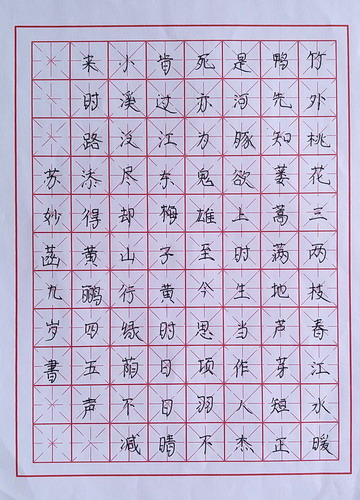 竹外桃花三两枝春江水暖
鸭先知蒌蒿满地芦芽短正
是河豚欲上时生当作人杰
死亦为鬼雄至今思项羽不
肯过江东梅子黄时日日晴
小溪没尽却山行绿荫不减
来时路添得黄鹂四五声
苏妙菡九岁書